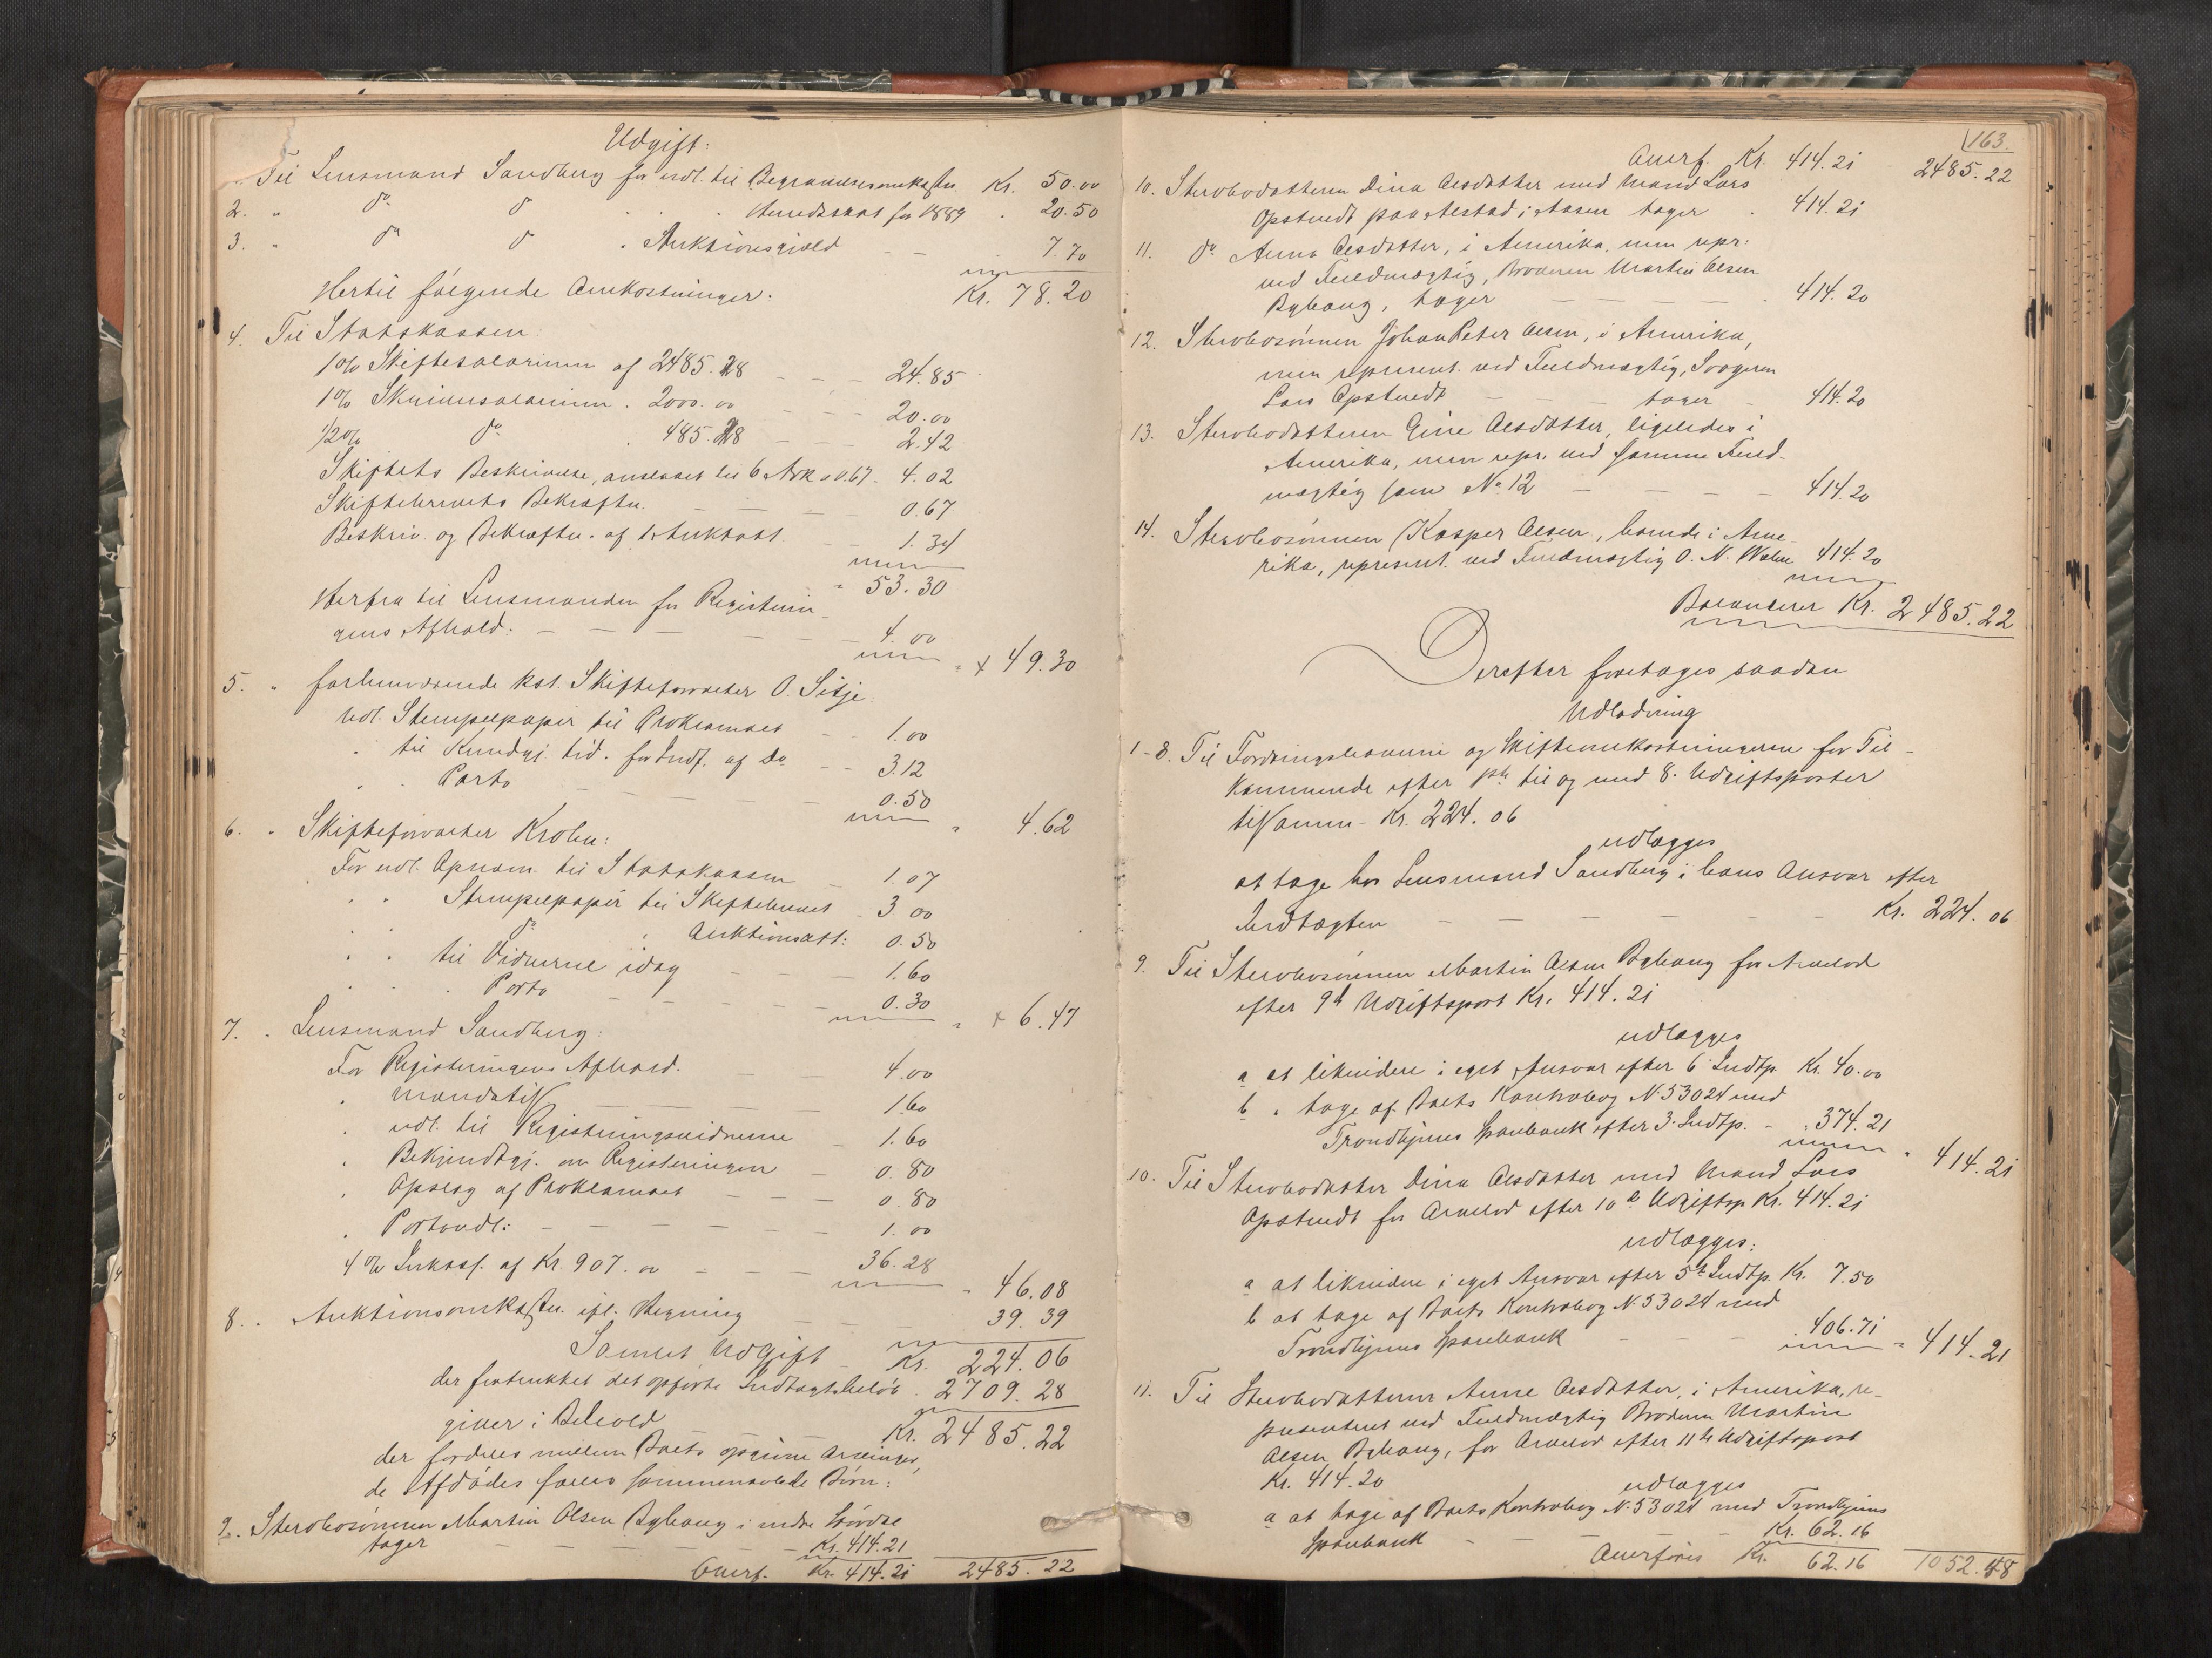 Udgift:
1. Til Lensmand Sandberg for udl. til Begravelsesomkostn. Kr. 50.00
2. " do do " Herredsskat for 1889 " 20.50
3. " do do " Auktionsgjæld - - 7.70
Hertil følgende Omkostninger. Kr. 78.20
4. Til Statskassen:
1 % Skiftesalarium af 2485.28 - - - 24.85
1 % Skriversalarium " 2000.00 - - - 20.00
1/2 % do " 485.28 - - - 2.42
Skiftets Beskrivelse, anslaaet til 6 Ark a 0.67 - 4.02
Skiftebrevets Bekræftn. - - - 0.67
Beskriv. og Bekræftn. af 1 Auktatt - - 1.34
" 53.30
Herfra til Lensmanden for Registerin-
gens Afhold: - - - - - 4.00
" x 49.30
5. " forhenværende kst. Skifteforvalter O. Sitje:
Udl. Stempelpapir til Proklamaet - - 1.00
" til Kundgj. tid. for Indf. af Do - - 3.12
" " Porto - - - - 0.50
" 4.62
6. " Skifteforvalter Krohn:
For udl. Opnavn. til Statskassen - 1.07
" " Stempelpapir til Skiftebrevet - 3.00
" " do " Auktionsatt: 0.50
" " til Vidnerne idag - - - 1.60
" " " Porto - - - - 0.30
" x 6.47
7. " Lensmand Sandberg:
For Registeringens Afhold. - - 4.00
" Mandatill - - - 1.60
" udl. til Registringsvidnerne - 1.60
" Bekjendtgj. om Registeringen - 0.80
" Opslag af Proklamaet - - - 0.80
" Portoudl: - - - - - 1.00
4 % Inkass. af Kr. 907.00 - - - 36.28
" 46.08
8. " Auktionsomkostn. ifl. Regning - - - 39.39
Samlet Udgift - Kr. 224.06
der fratrukket det opførte Indtægtsbeløb - 2709.28
giver i Behold - - - Kr. 2485.22
der fordeles mellem Boets opgivne Arvinger,
de Afdødes fælles sammenavlede Børn:
9. Stervbosønnen Martin Olsen Byhaug i indre
tager - - - - - Kr. 414.21
Overf. Kr. 414.21 2485.22
163.
Overf. Kr. 414.21 2485.22
10. Stervbodatteren Dina Olsdatter med Mand Lars
Opstuedt paa Aastad i Aasen tager " 414.21
11. do Anna Olsdatter, i Amerika, men repr.
ved Fuldmægtig, Broderen Martin Olsen
Byhaug, tager - - - - - 414.20
12. Stervbosønnen Johan Peter Olsen, i Amerika,
men represent. ved Fuldmægtig, Svogeren
Lars Opstuedt - - - tager - 414.20
13. Stervbodatteren Gine Olsdatter, ligeledes i
Amerika, men repr. ved samme Fuld-
mægtig som No 12 - - - - 414.20
14. Stervbosønnen Kasper Olsen, boende i Ame-
rika, represent. ved Fuldmægtig O. N. 414.20
Balancerer Kr. 2485.22
Derefter foretages saadan
Udlodning
1-8. Til Fordringshaverne og Skifteomkostningerne for Til-
kommende efter 1ste til og med 8. Udgiftsposter
tilsammen - Kr. 224.06
udlægges
at tage hos Lensmand Sandberg i hans Ansvar efter
Indtægten - - - - - Kr. 224.06
9. Til Stervbosønnen Martin Olsen Byhaug for Arvelod
efter 9d Udgiftspost Kr. 414.21
udlægges
a at likvidere i eget Ansvar efter 6 Indtp. Kr. 40.00
b " tage af Boets Kontrabog N. 53024 med
Trondhjems Sparebank efter 3. Indtp. - " 374.21
" 414.21
10. Til Stervbodatter Dina Olsdatter med Mand Lars
Opstuedt for Arvelod efter 10de Udgiftsp. Kr. 414.21
udlægges:
a at likvidere i eget Ansvar efter 5t Indtp. Kr. 7.50
b at tage af Boets Kontrabog N. 53024 med
Trondhjems Sparebank - - - " 406.71
" 414.21
11. Til Stervbodatteren Anne Olsdatter, i Amerika, re-
presenteret ved Fuldmægtig Broderen Martin
Olsen Byhaug, for Arvelod efter 11te Udgiftspost
Kr. 414.20
udlægges
a at tage af Boets Kontrabog N. 53024 med Trondhjems
Sparebank - - - Kr. 62.16
Overføres Kr. 62.16 1052.48